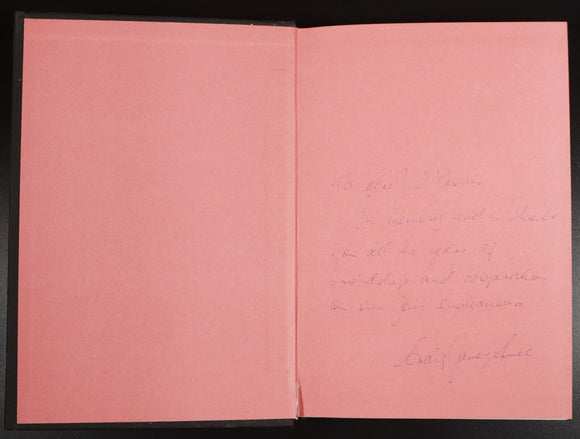 To dear
In memory and in thanks
for all the years of
friendship and cooperation
in our joint endeavours
Craig